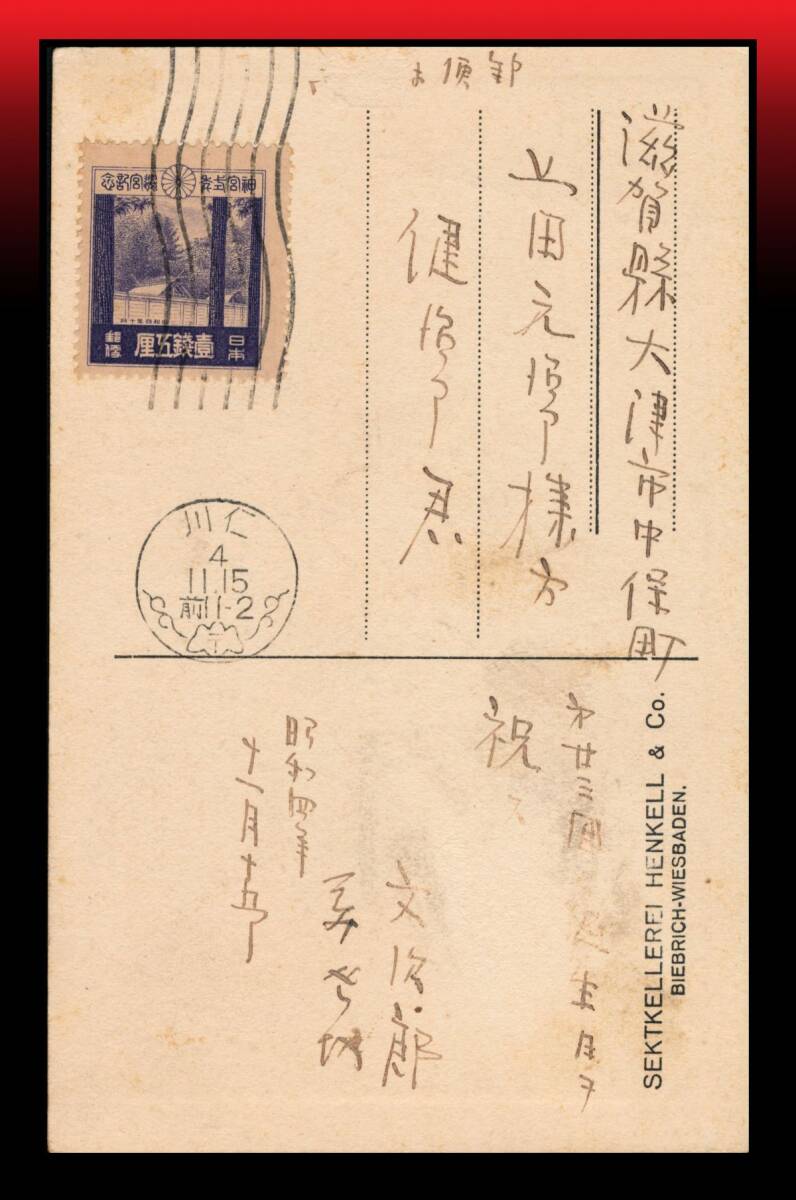 郵便
滋賀縣大津市中保町
上田元治郎様方
健治郎君
神宮式年遷宮記念
昭和四年十月
日本 壹錢五厘 郵便
仁川
4
11.15
前11-2
SEKTKELLEREI HENKELL & Co.
BIEBRICH-WIESBADEN.
第廿三回
祝
文治郎
昭和四年
十一月十五日